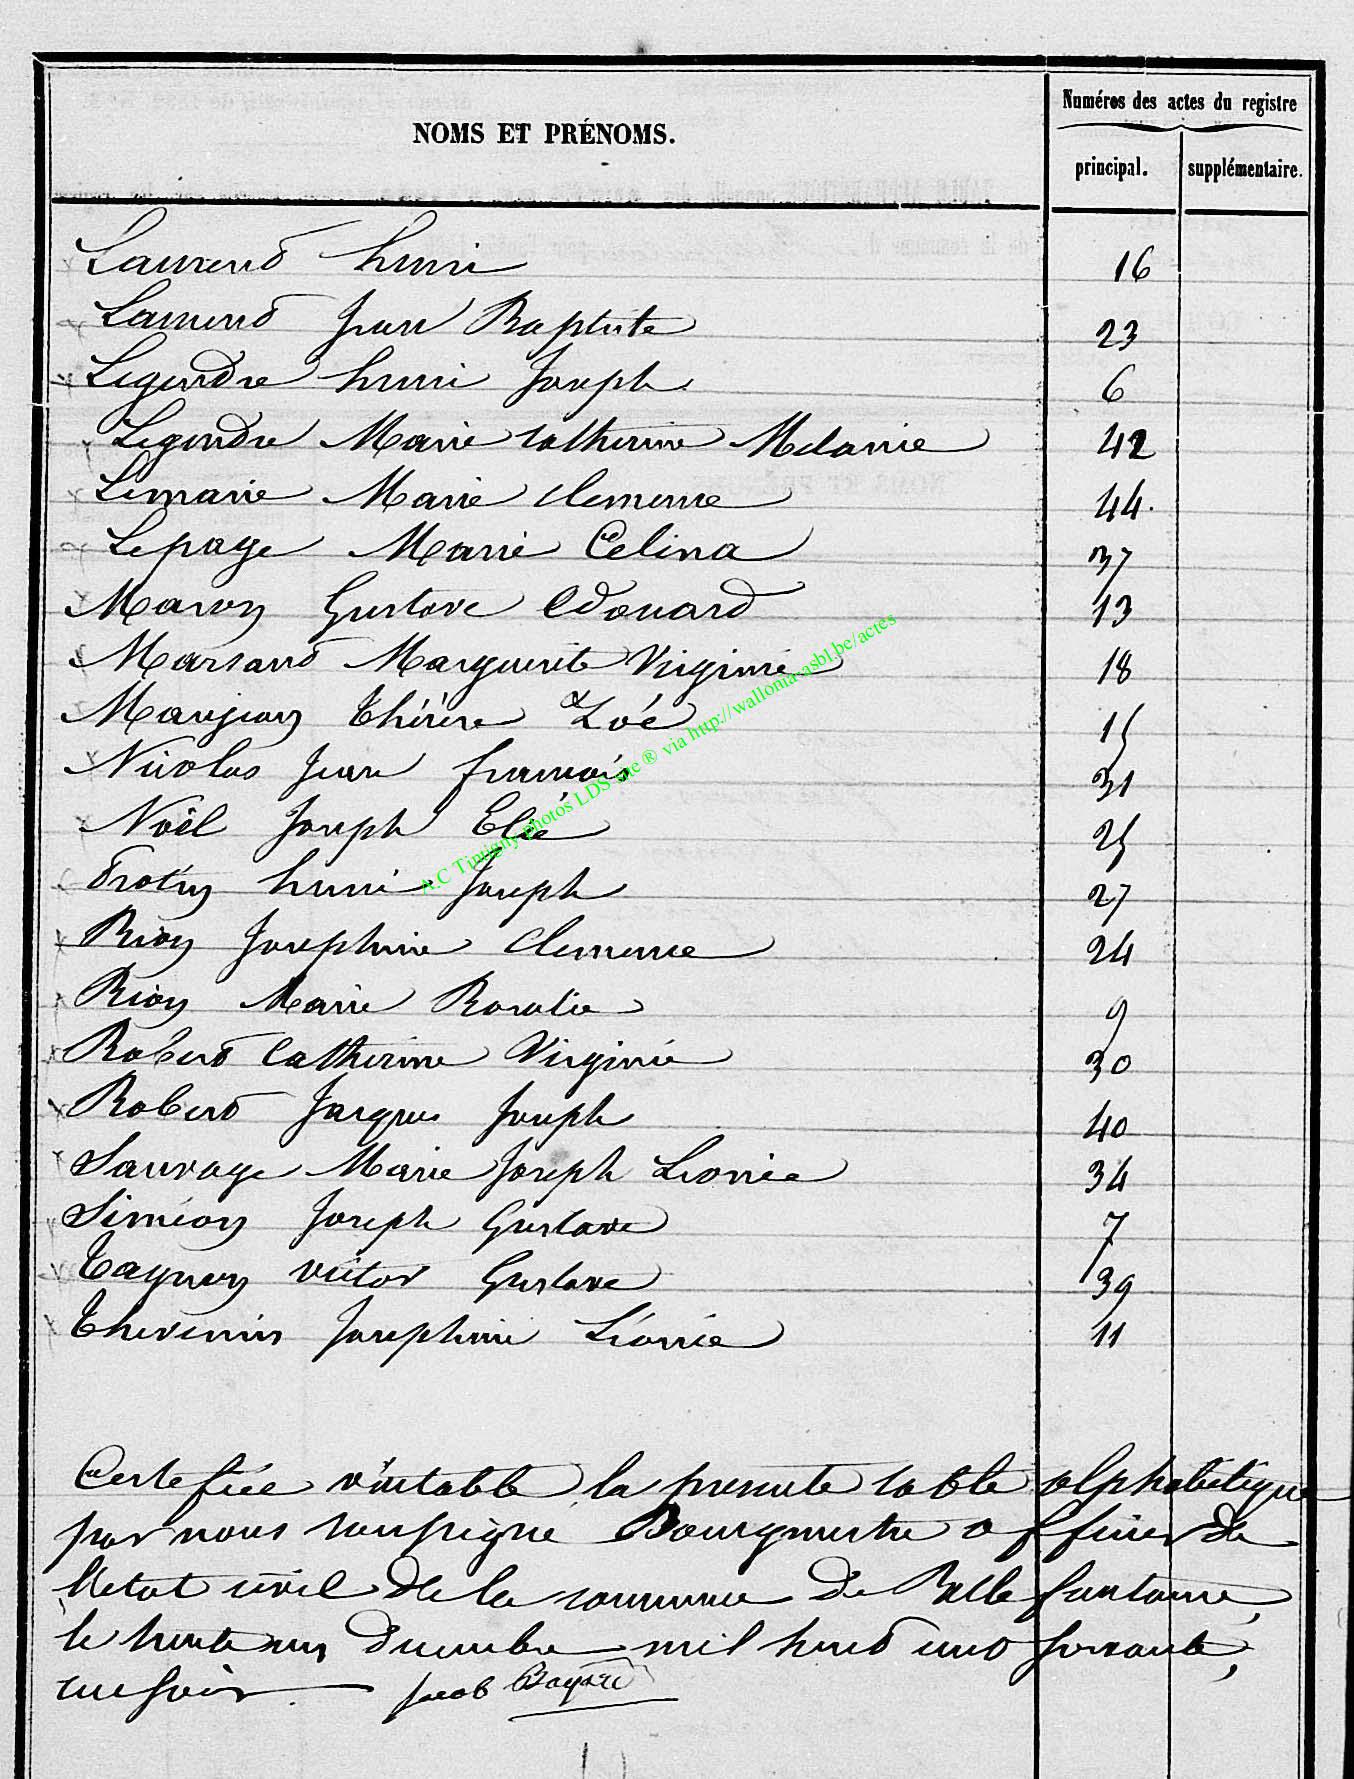 NOMS ET PRÉNOMS.
Numéros des actes du registre
principal.
supplémentaire.
Laurend henri 16
Laurend Jean Baptiste 23
Legendre henri Joseph 6
Legendre Marie Catherine Melanie 42
Lemaire Marie Clemence 44.
Lepage Marie Celina 37
Maron Gustave Edouard 13
Marsand Marguerite Virginie 18
Maujean Thérèse Zoé 15
Nicolas Jean francois 31
Noël Joseph Elie 25
Protin henri Joseph 27
Rion Josephine Clemence 24
Rion Marie Rosalie 9
Roberd Catherine Virginie 30
Roberd Jacques Joseph 40
Sauvage Marie Joseph Leonie 34
Siméon Joseph Gustave 7
Tagnon victor Gustave 39
Thevenin Josephine Léonie 11
Certefiée véritable la presente table alphabétique
par nous soussigné Bourgmestre officier de
l'etat civil de la commune de Bellefontaine,
le trente un decembre mil huit cent soixante,
Jacob
A.C Tintigny photos LDS site ® via http://wallonia-asbl.be/actes